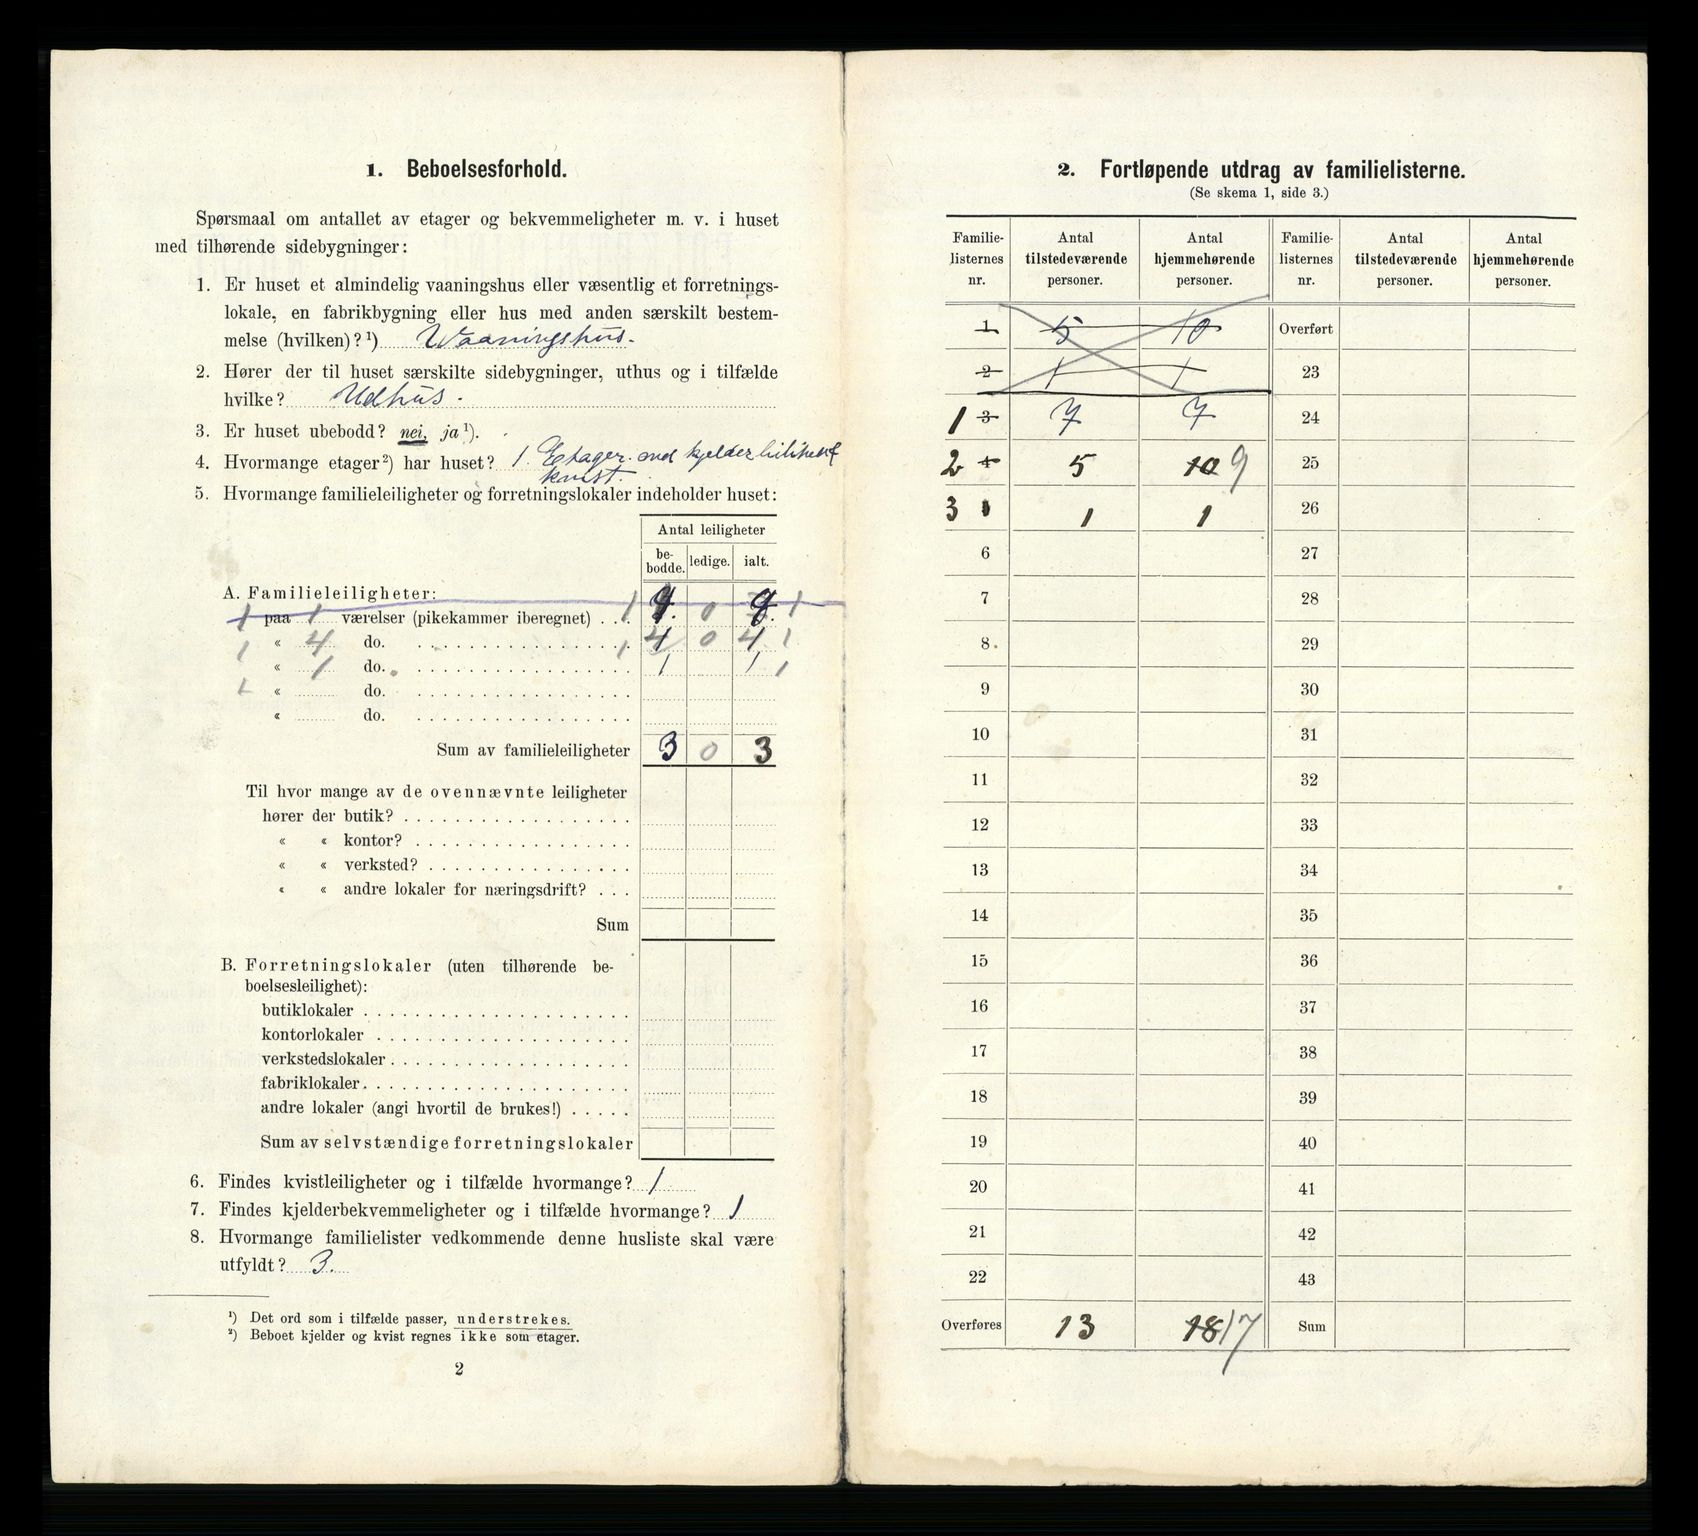 1. Beboelsesforhold.
Spørsmaal om antallet av etager og bekvemmeligheter m. v. i huset
med tilhørende sidebygninger:
1. Er huset et almindelig vaaningshus eller væsentlig et forretnings-
lokale, en fabrikbygning eller hus med anden særskilt bestem-
melse (hvilken)? ¹) Vaaningshus.
2. Hører der til huset særskilte sidebygninger, uthus og i tilfælde
hvilke? Udhus.
3. Er huset ubebodd? nei, ja ¹).
4. Hvormange etager ²) har huset? 1. Etager. med kjelder
kvist.
5. Hvormange familieleiligheter og forretningslokaler indeholder huset:
Antal leiligheter
be-bodde. ledige. ialt.
A. Familieleiligheter:
1 paa 1 værelser (pikekammer iberegnet) . . . 1 0 1
1 « 4 do. 1 4 0 4 1
« 1 do. 1 1 1
1 « do.
« do.
Sum av familieleiligheter 3 0 3
Til hvor mange av de ovennævnte leiligheter
hører der butik?
« « kontor?
« « verksted?
« « andre lokaler for næringsdrift?
Sum
B. Forretningslokaler (uten tilhørende be-
boelsesleilighet):
butiklokaler
kontorlokaler
verkstedslokaler
fabriklokaler
andre lokaler (angi hvortil de brukes!)
Sum av selvstændige forretningslokaler
6. Findes kvistleiligheter og i tilfælde hvormange? 1
7. Findes kjelderbekvemmeligheter og i tilfælde hvormange? 1
8. Hvormange familielister vedkommende denne husliste skal være
utfyldt? 3.
¹) Det ord som i tilfælde passer, understrekes.
²) Beboet kjelder og kvist regnes ikke som etager.
2
2. Fortløpende utdrag av familielisterne.
(Se skema 1, side 3.)
Familie-listernes nr. Antal tilstedeværende personer. Antal hjemmehørende personer. Familie-listernes nr. Antal tilstedeværende personer. Antal hjemmehørende personer.
1 5 10 Overført
2 1 1 23
1 3 7 7 24
2 4 5 10 9 25
3 1 1 26
6 27
7 28
8 29
9 30
10 31
11 32
12 33
13 34
14 35
15 36
16 37
17 38
18 39
19 40
20 41
21 42
22 43
Overføres 13 18 17 Sum